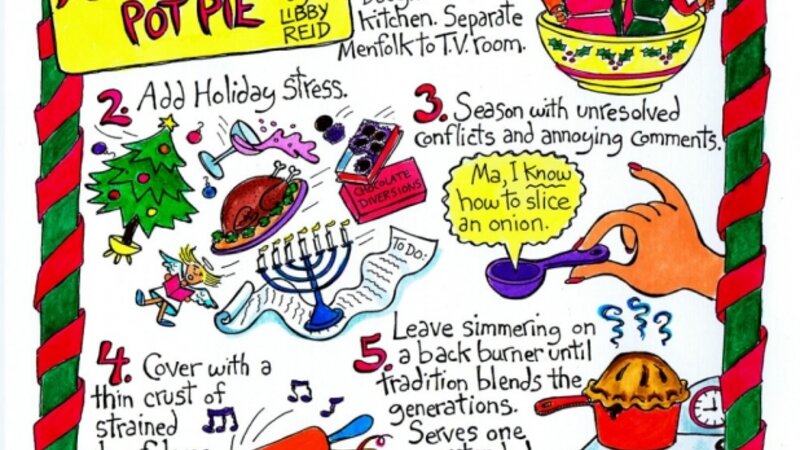 POT PIE
by
LIBBY
REID
kitchen. Separate
Menfolk to T.V. room.
2. Add Holiday Stress.
CHOCOLATE
DIVERSIONS
TO DO:
3. Season with unresolved
conflicts and annoying comments.
Ma, I know
how to slice
an onion.
4. Cover with a
thin crust of
strained
5. Leave simmering on
a back burner until
tradition blends the
generations.
Serves one